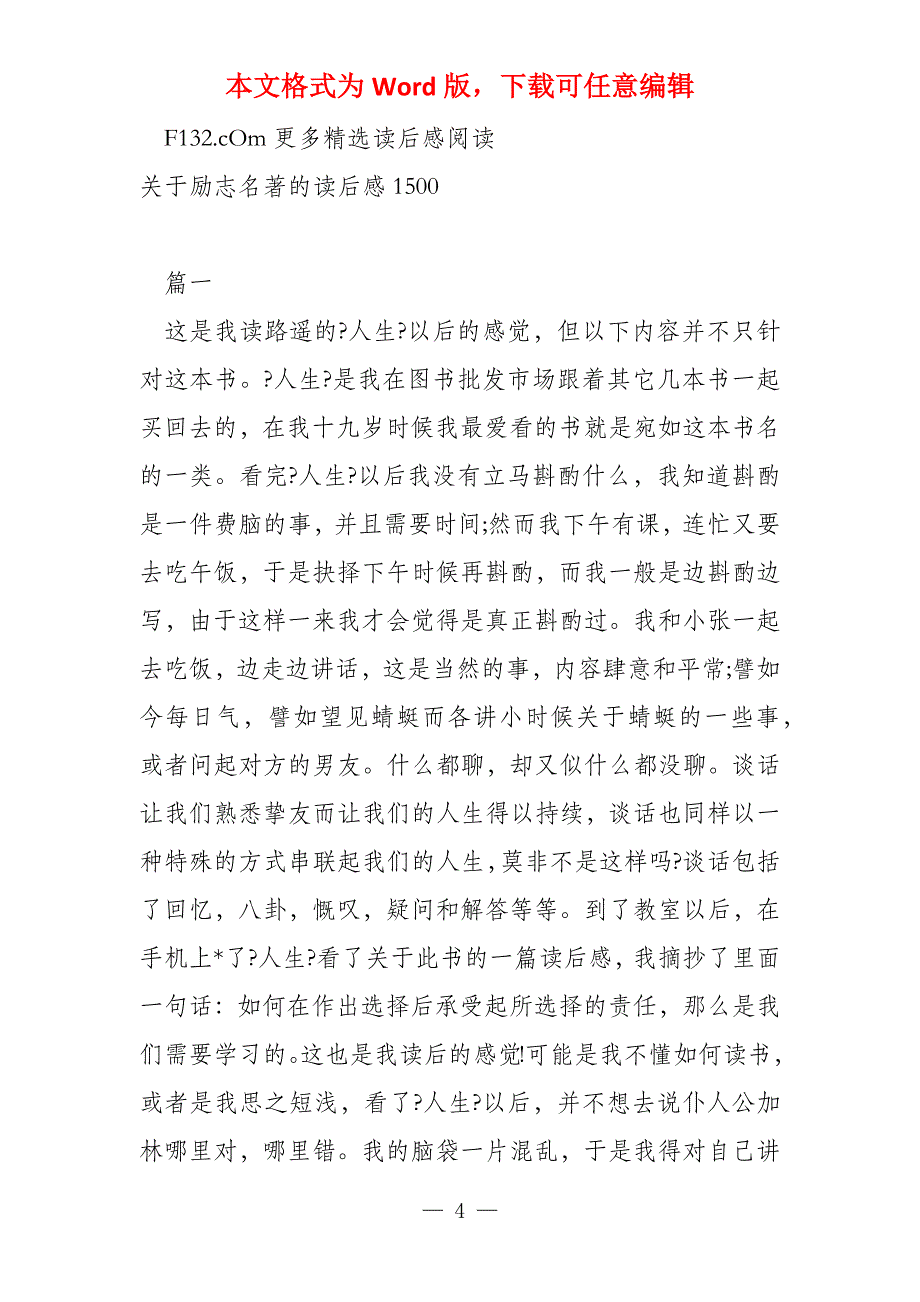 本文格式为 Word 版，下载可任意编辑
F132.cOm 更多精选读后感阅读
关于励志名著的读后感 1500
篇一
这是我读路遥的?人生?以后的感觉，但以下内容并不只针
对这本书。?人生?是我在图书批发市场跟着其它几本书一起
买回去的，在我十九岁时候我最爱看的书就是宛如这本书名
的一类。看完?人生?以后我没有立马斟酌什么，我知道斟酌
是一件费脑的事，并且需要时间;然而我下午有课，连忙又要
去吃午饭，于是抉择下午时候再斟酌，而我一般是边斟酌边
写，由于这样一来我才会觉得是真正斟酌过。我和小张一起
去吃饭，边走边讲话，这是当然的事，内容肆意和平常;譬如
今每日气，譬如望见蜻蜓而各讲小时候关于蜻蜓的一些事，
或者问起对方的男友。什么都聊，却又似什么都没聊。谈话
让我们熟悉挚友而让我们的人生得以持续，谈话也同样以一
种特殊的方式串联起我们的人生，莫非不是这样吗?谈话包括
了回忆，八卦，慨叹，疑问和解答等等。到了教室以后，在
手机上*了?人生?看了关于此书的一篇读后感，我摘抄了里面
一句话：如何在作出选择后承受起所选择的责任，那么是我
们需要学习的。这也是我读后的感觉!可能是我不懂如何读书，
或者是我思之短浅，看了?人生?以后，并不想去说仆人公加
林哪里对，哪里错。我的脑袋一片混乱，于是我得对自己讲
— 4 —